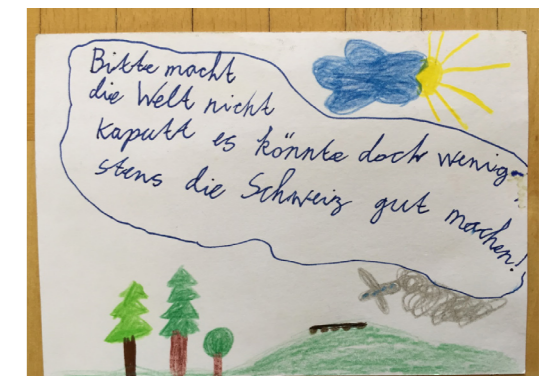 Bitte macht
die Welt nicht
kaputt es könnte doch wenig-
stens die Schweiz gut machen!